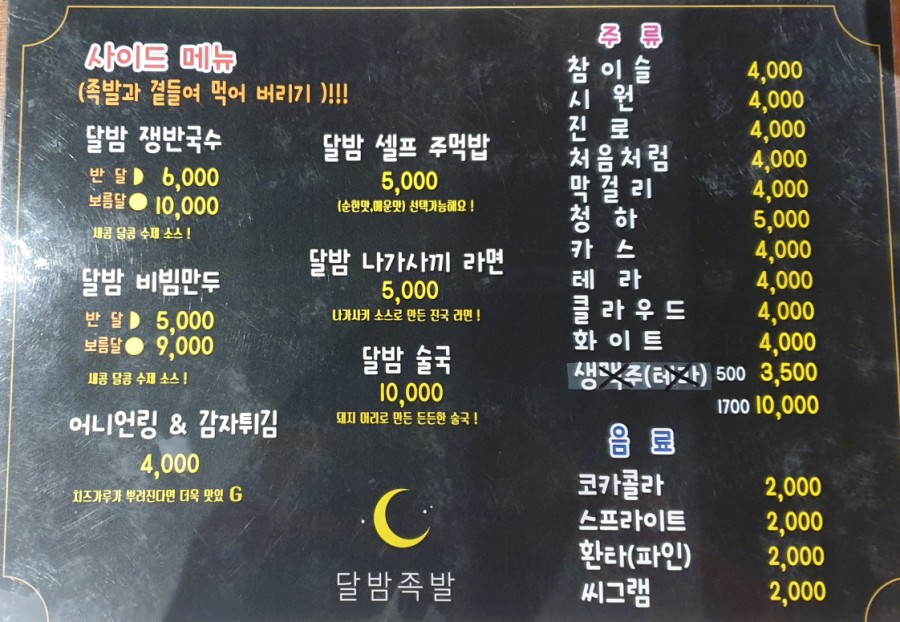 사이드 메뉴
(족발과 곁들여 먹어 버리기 )!!!
달밤 쟁반국수
반 달 6,000
보름달 10,000
새콤 달콤 수제 소스 !
달밤 비빔만두
반 달 5,000
보름달 9,000
새콤 달콤 수제 소스 !
어니언링 & 감자튀김
4,000
치즈가루가 뿌려진다면 더욱 맛있 G
달밤 셀프 주먹밥
5,000
(순한맛,매운맛) 선택가능해요 !
달밤 나가사끼 라면
5,000
나가사키 소스로 만든 진국 라면 !
달밤 술국
10,000
돼지 머리로 만든 든든한 술국 !
달밤족발
주 류
참 이 슬 4,000
시 원 4,000
진 로 4,000
처음처럼 4,000
막걸리 4,000
청 하 5,000
카 스 4,000
테 라 4,000
클라우드 4,000
화이트 4,000
생맥주(테라) 500 3,500
1700 10,000
음 료
코카콜라 2,000
스프라이트 2,000
환타(파인) 2,000
씨그램 2,000